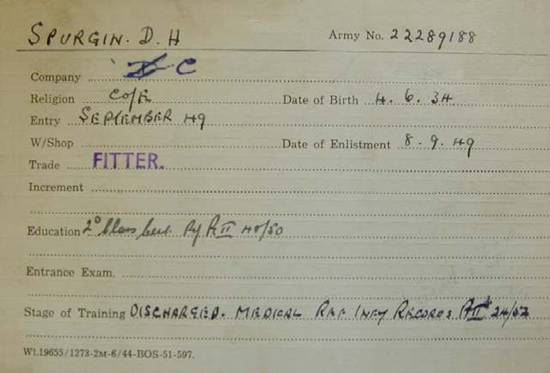 SPURGIN. D. H Army No. 22289188
Company C
Religion C of E Date of Birth 4. 6. 34
Entry SEPTEMBER 49
W/Shop Date of Enlistment 8. 9. 49
Trade FITTER.
Increment
Education 2° Class Pt II 48/50
Entrance Exam.
Stage of Training DISCHARGED. MEDICAL INFY RECORDS. Pt II 24/52
Wt.19655/1273-2M-6/44-BOS-51-597.